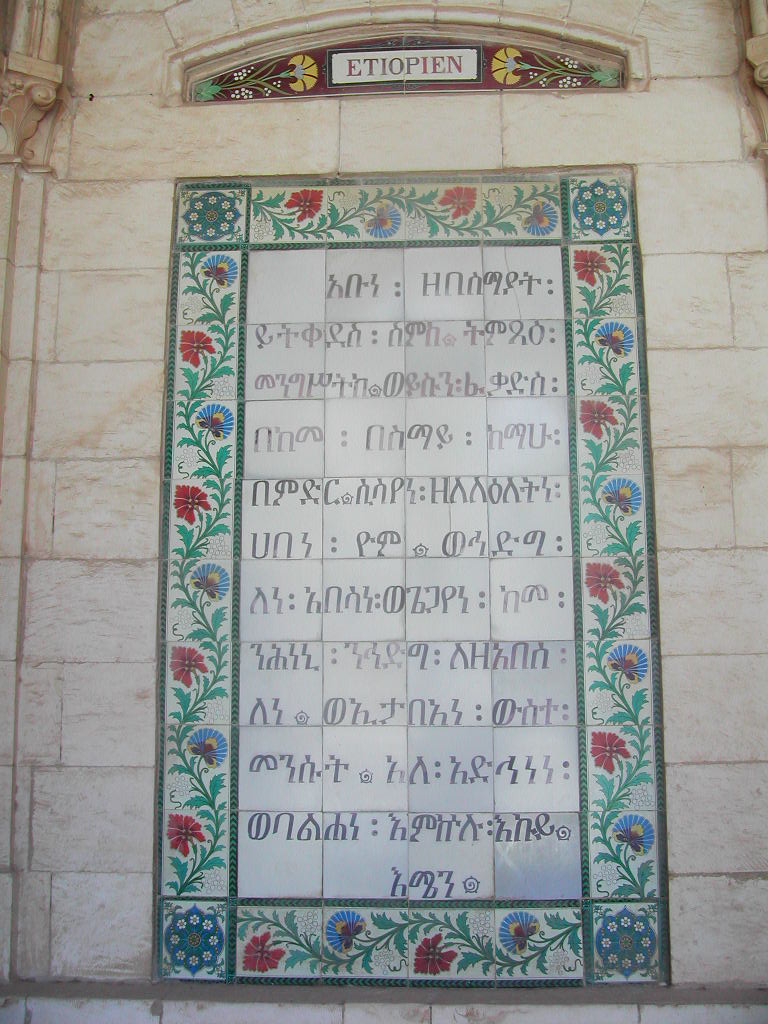 ETIOPIEN
አቡነ ፡ ዘበሰማያት ፡
ይትቀደስ ፡ ስምከ ። ትምጻዕ ፡
መንግሥትከ ። ወይኩን ፡ ፈቃድከ ፡
በከመ ፡ በሰማይ ፡ ከማሁ ፡
በምድር ። ሲሳየነ ፡ ዘለለዕለትነ ፡
ሀበነ ፡ ዮም ። ወኅድግ ፡
ለነ ፡ አበሳነ ፡ ወጌጋየነ ፡ ከመ ፡
ንሕነኒ ፡ ንኅድግ ፡ ለዘአበሰ ፡
ለነ ። ወኢታበአነ ፡ ውስተ ፡
መንሱት ። አለ ፡ አድኅነነ ፡
ወባልሐነ ፡ እምኵሉ ፡ እኩይ ።
እሜን ።